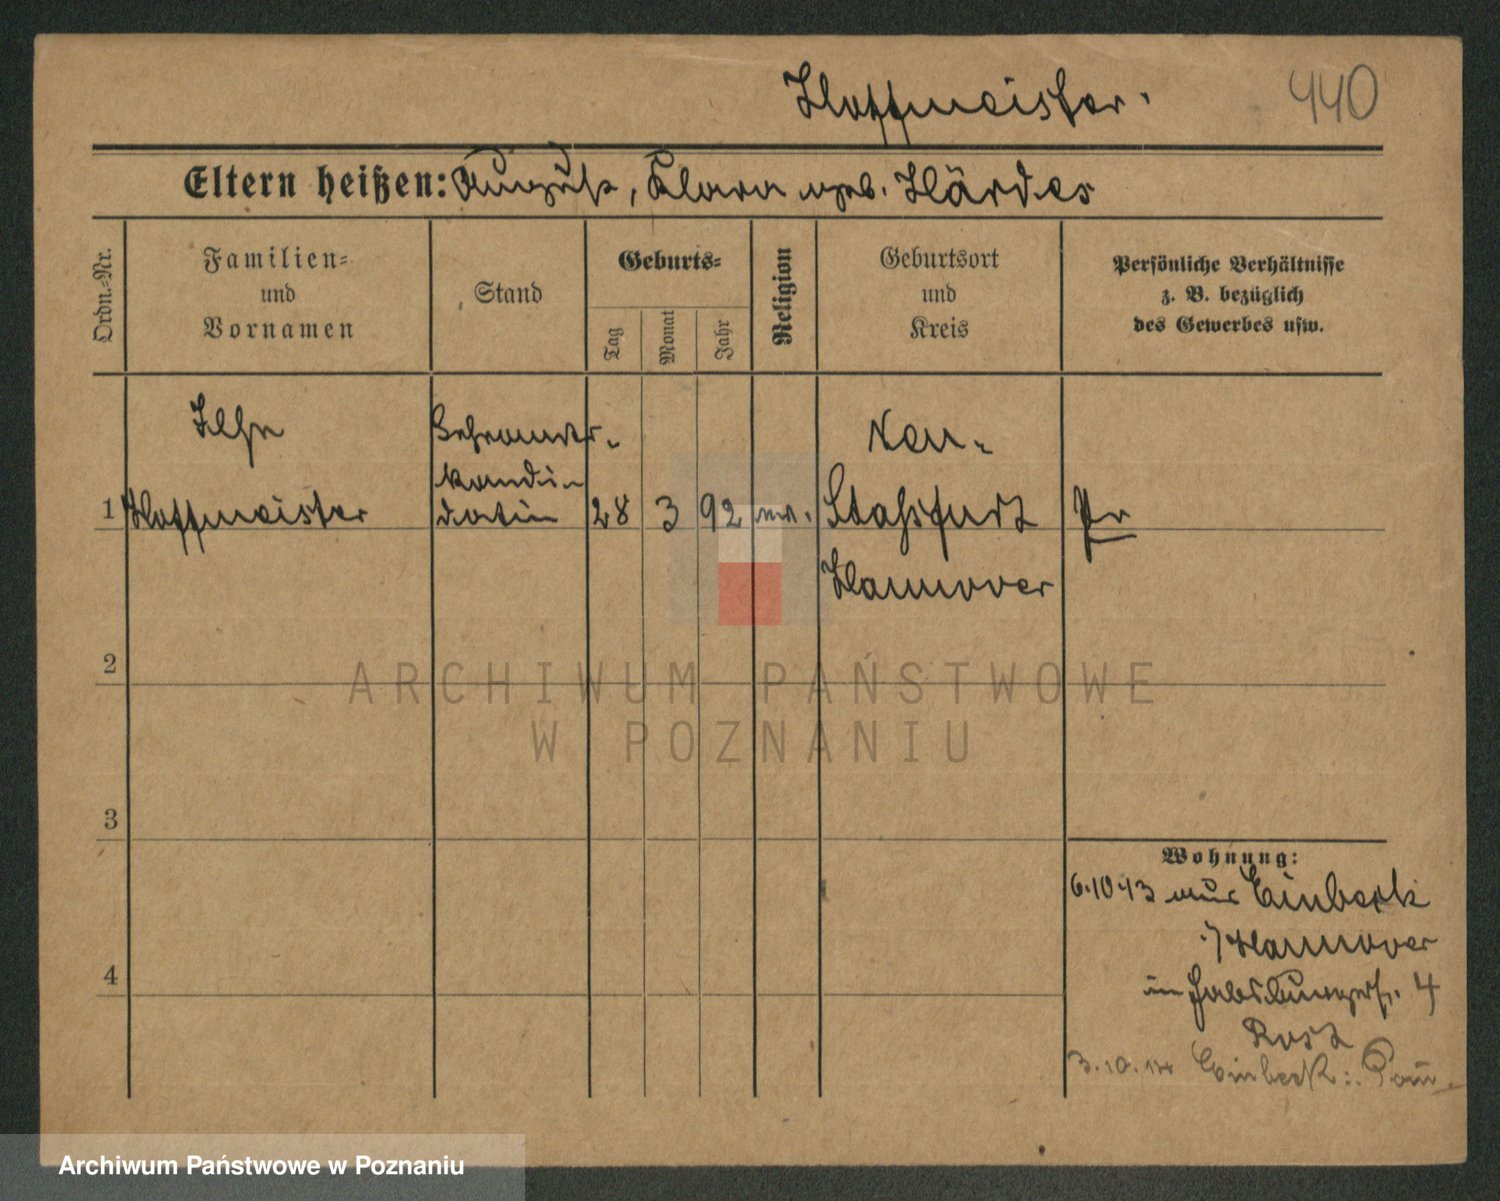 Hoffmeister.
440
Eltern heißen: August, Klara geb. Härdes
Ordn.-Nr.
Familien-
und
Vornamen
Stand
Geburts-
Tag
Monat
Jahr
Religion
Geburtsort
und
Kreis
Persönliche Verhältnisse
z. B. bezüglich
des Gewerbes usw.
Ilse
Hoffmeister
kandi-
datin
1
28
3
92
ev.
Neu-
Staßfurt
Hannover
Pr
2
3
4
Wohnung:
6.10.13 aus Einbeck
Hannover
in Habsburgerstr. 4
Rost
3.10.14 Einbeck
ARCHIWUM PAŃSTWOWE
W POZNANIU
Archiwum Państwowe w Poznaniu